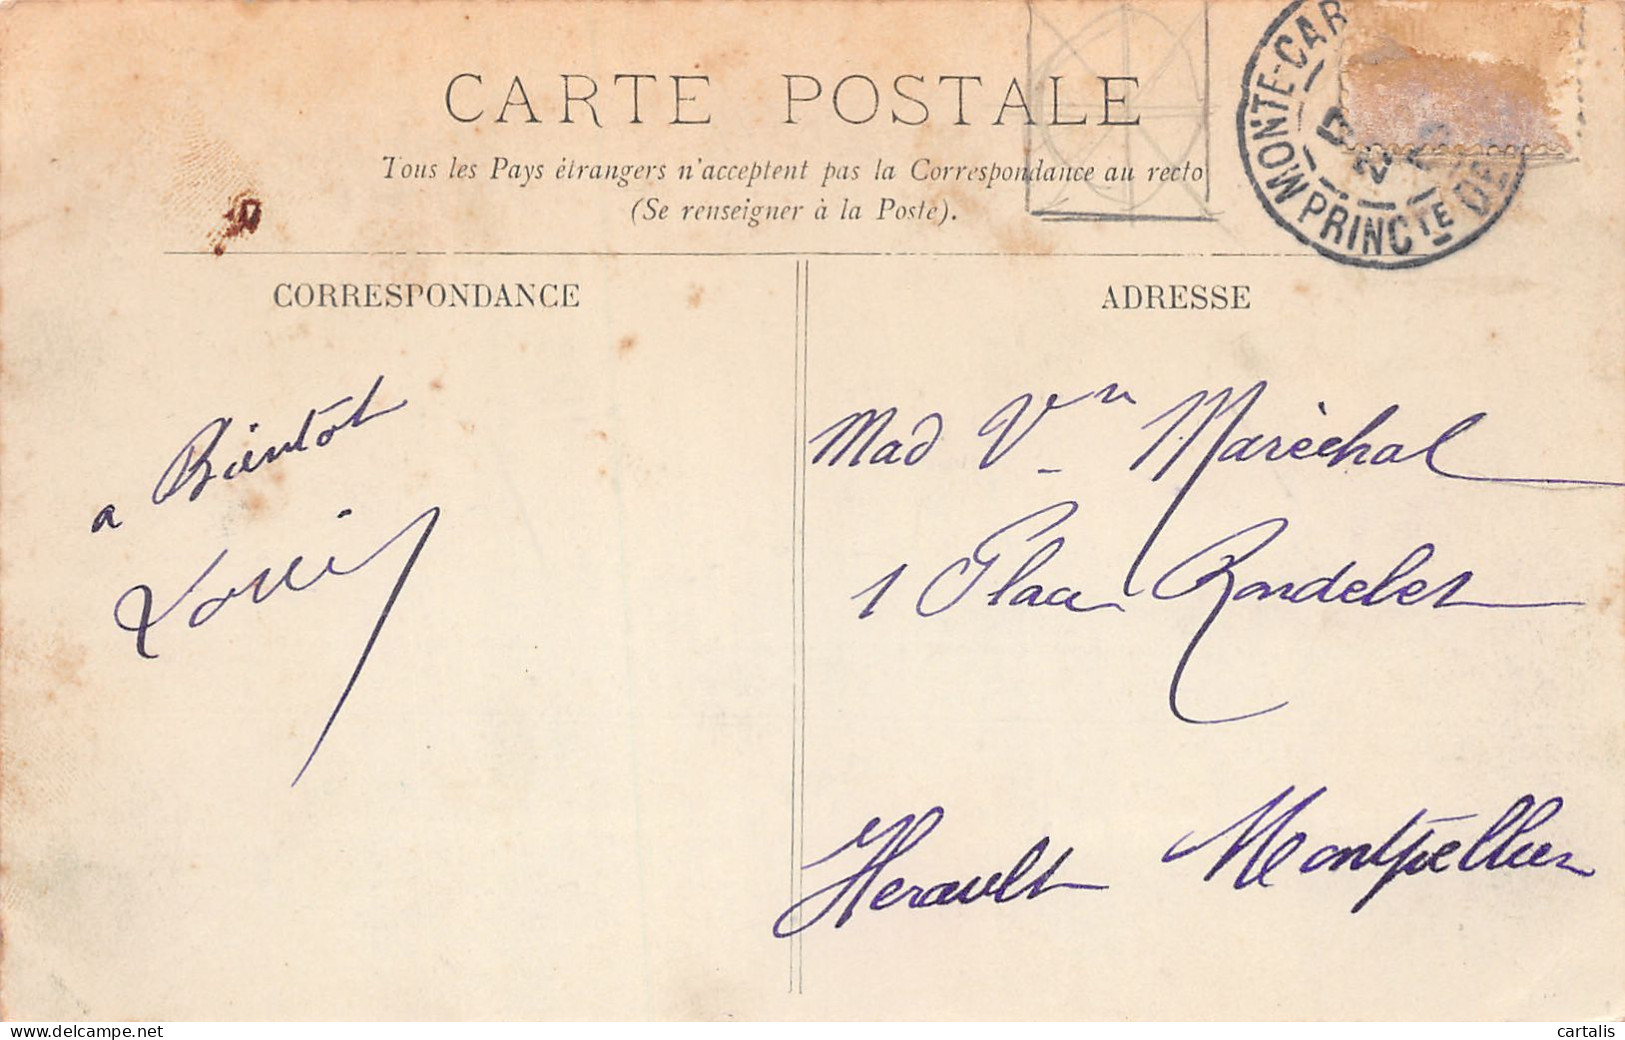 CARTE POSTALE
Tous les Pays étrangers n'acceptent pas la Correspondance au recto
(Se renseigner à la Poste).
MONTE-CAR
PRINCTE DE
CORRESPONDANCE
ADRESSE
a Bientôt
Mad Vve Maréchal
1 Place Rondelet
Herault Montpellier
cartalis